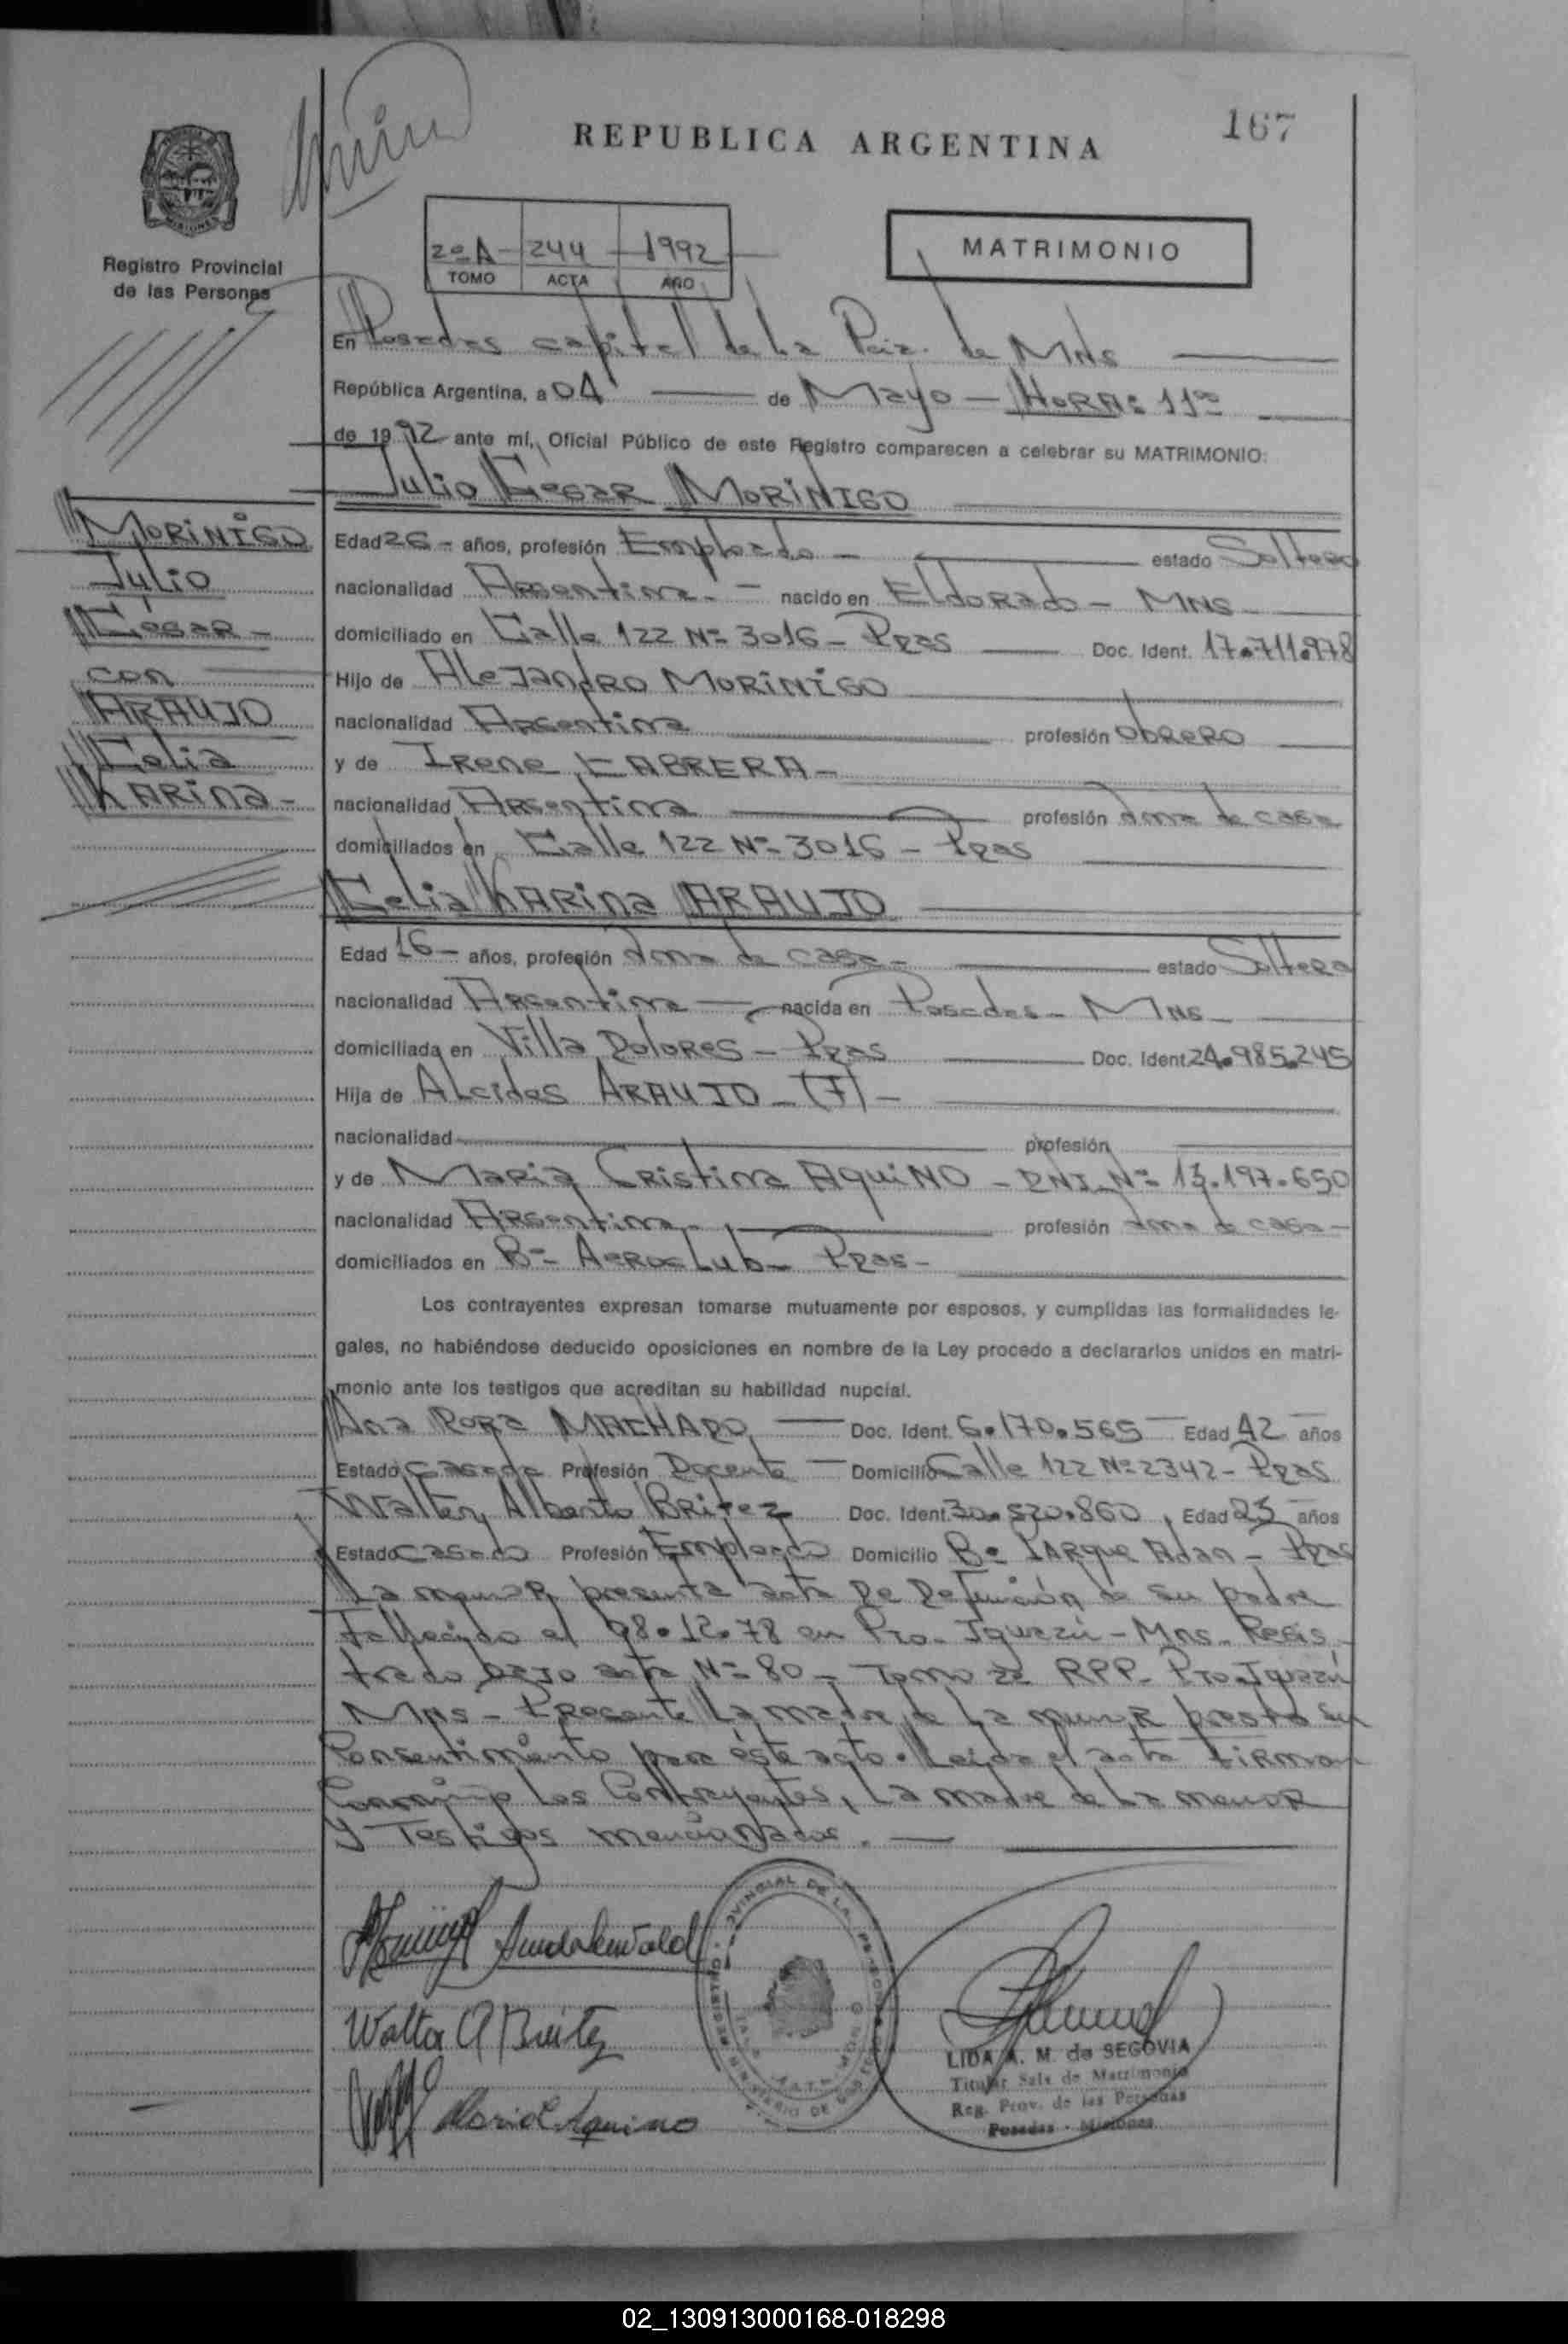 167
REPUBLICA ARGENTINA
Registro Provincial
de las Personas
2º A - 244 - 1992
TOMO ACTA AÑO
MATRIMONIO
En Posadas capital de la Pcia. de Mns
República Argentina, a 04 de Mayo - HORA: 11
de 1992 ante mí, Oficial Público de este Registro comparecen a celebrar su MATRIMONIO:
Julio César MORINIGO
MORINIGO
Julio
César -
con
ARAUJO
Celia
KARina -
Edad 26 - años, profesión Empleado - estado Soltero
nacionalidad Argentina. - nacido en ELdoRado - MNS
domiciliado en Calle 122 Nº 3016 - Pdas Doc. Ident. 17.711.978
Hijo de ALeJandRO MORINIGO
nacionalidad Argentina profesión obRERO
y de IRene CABRERA -
nacionalidad Argentina profesión Ama de casa
domiciliados en Calle 122 Nº 3016 - Pdas
Celia KARina ARAUJO
Edad 16 - años, profesión Ama de casa - estado Soltera
nacionalidad Argentina nacida en Posadas - MNS -
domiciliada en Villa DoLORes - Pdas Doc. Ident. 24.985.245
Hija de ALcides ARAUJO - (F) -
nacionalidad profesión
y de Maria CRistina AquiNO - DNI Nº 13.197.650
nacionalidad Argentina - profesión Ama de casa -
domiciliados en Bº AeRocLub - Pdas -
Los contrayentes expresan tomarse mutuamente por esposos, y cumplidas las formalidades le-
gales, no habiéndose deducido oposiciones en nombre de la Ley procedo a declararlos unidos en matri-
monio ante los testigos que acreditan su habilidad nupcial.
Ana Rosa MACHADO Doc. Ident. 6.170.565 Edad 42 años
Estado casada Profesión Docente Domicilio Calle 122 Nº 2342 - Pdas
Walter Alberto BRitez Doc. Ident. 30.520.860 Edad 23 años
Estado casado Profesión Empleado Domicilio Bº PARque Adan - Pdas
La menoR presenta acta De Defunción de su padre
Fallecido el 08.12.78 en Pto. Iguazú - Mns. Regis-
trado bajo acta Nº 80 - Tomo RPP - Pto. Iguazú
Mns - PResente La madre de La menoR presta su
Consentimiento para éste acto. Leída el acta FiRman
Conmigo Los Contrayentes, La madre de La menoR
y Testigos mencionados.
Walter A Britez
Maria C Aquino
LIDA A. M. de SEGOVIA
Titular Sala de Matrimonio
Reg. Prov. de las Personas
Posadas - Misiones
02_130913000168-018298